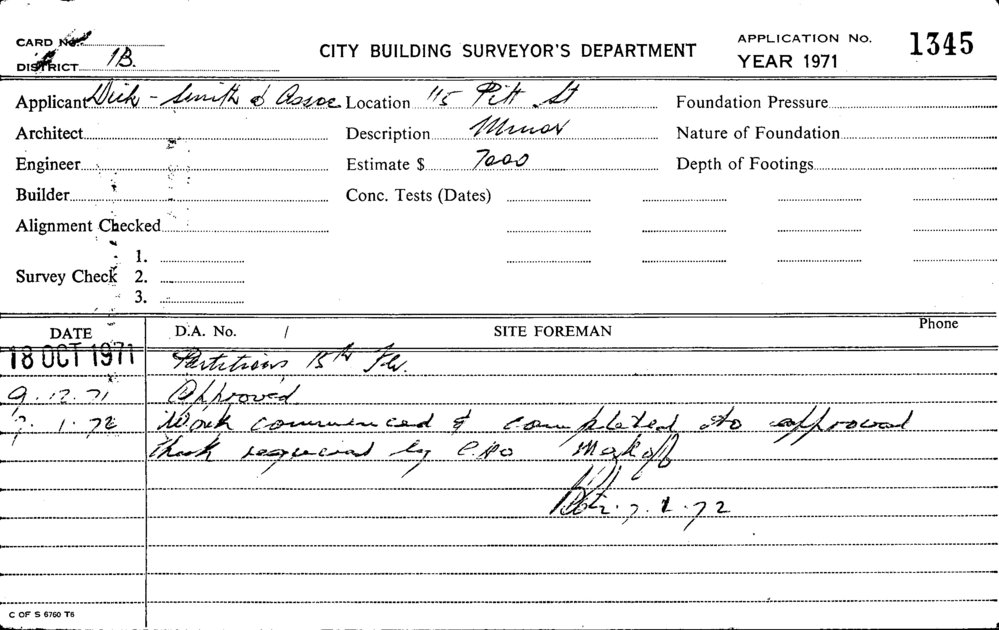 CARD No.
DISTRICT 1B.
CITY BUILDING SURVEYOR'S DEPARTMENT
APPLICATION No. 1345
YEAR 1971
Applicant Dick - Smith & Assoc Location 115 Pitt St Foundation Pressure
Architect Description Minor Nature of Foundation
Engineer Estimate $ 7000 Depth of Footings
Builder Conc. Tests (Dates)
Alignment Checked
1.
Survey Check 2.
3.
DATE D.A. No. / SITE FOREMAN Phone
18 OCT 1971 Partitions 15th Flr.
9.12.71 Approved
7.1.72 Work commenced & completed to approval
required by
7.1.72
C OF S 6760 T6